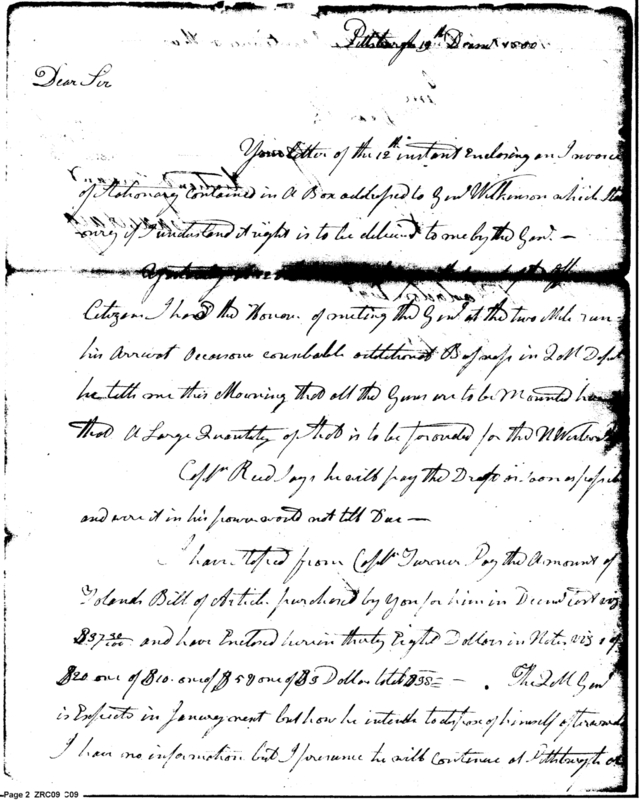 Pittsburgh 19th Decemr 1800
Dear Sir
Your letter of the 12th instant Enclosing an Invoice
of Stationary Contained in A Box addressed to Genl Wilkinson which
if I understand it right is to be deliverd to me by the Genl. —
Yesterday
Citizens I had the Honour of meeting the Genl at the two Mile run
his Arrival Occasions additional Business in QM Dept
he tells me this Morning that all the Guns are to be Mounted
that A Large Quantity of is to be forwarded for the
Captn Reed Says he will pay the Draft as soon as possible
and were it in his power would not till Due —
I have Stoped from Captn Turner Pay the Amount of
Bill of Article purchased by You for him in Decemr last viz
$37 30/100 and have Enclosed herein thirty Eight Dollars in Notes viz 1 of
$20 one of $10 one of $5 & one of $3 Dollars total $38 — . The QM Genl
is Expects in Janury next but how he intends to dispose of himself afterwards
I have no information but I presume he will contenue at Pittsburgh or
Page 2 ZRC09 C09